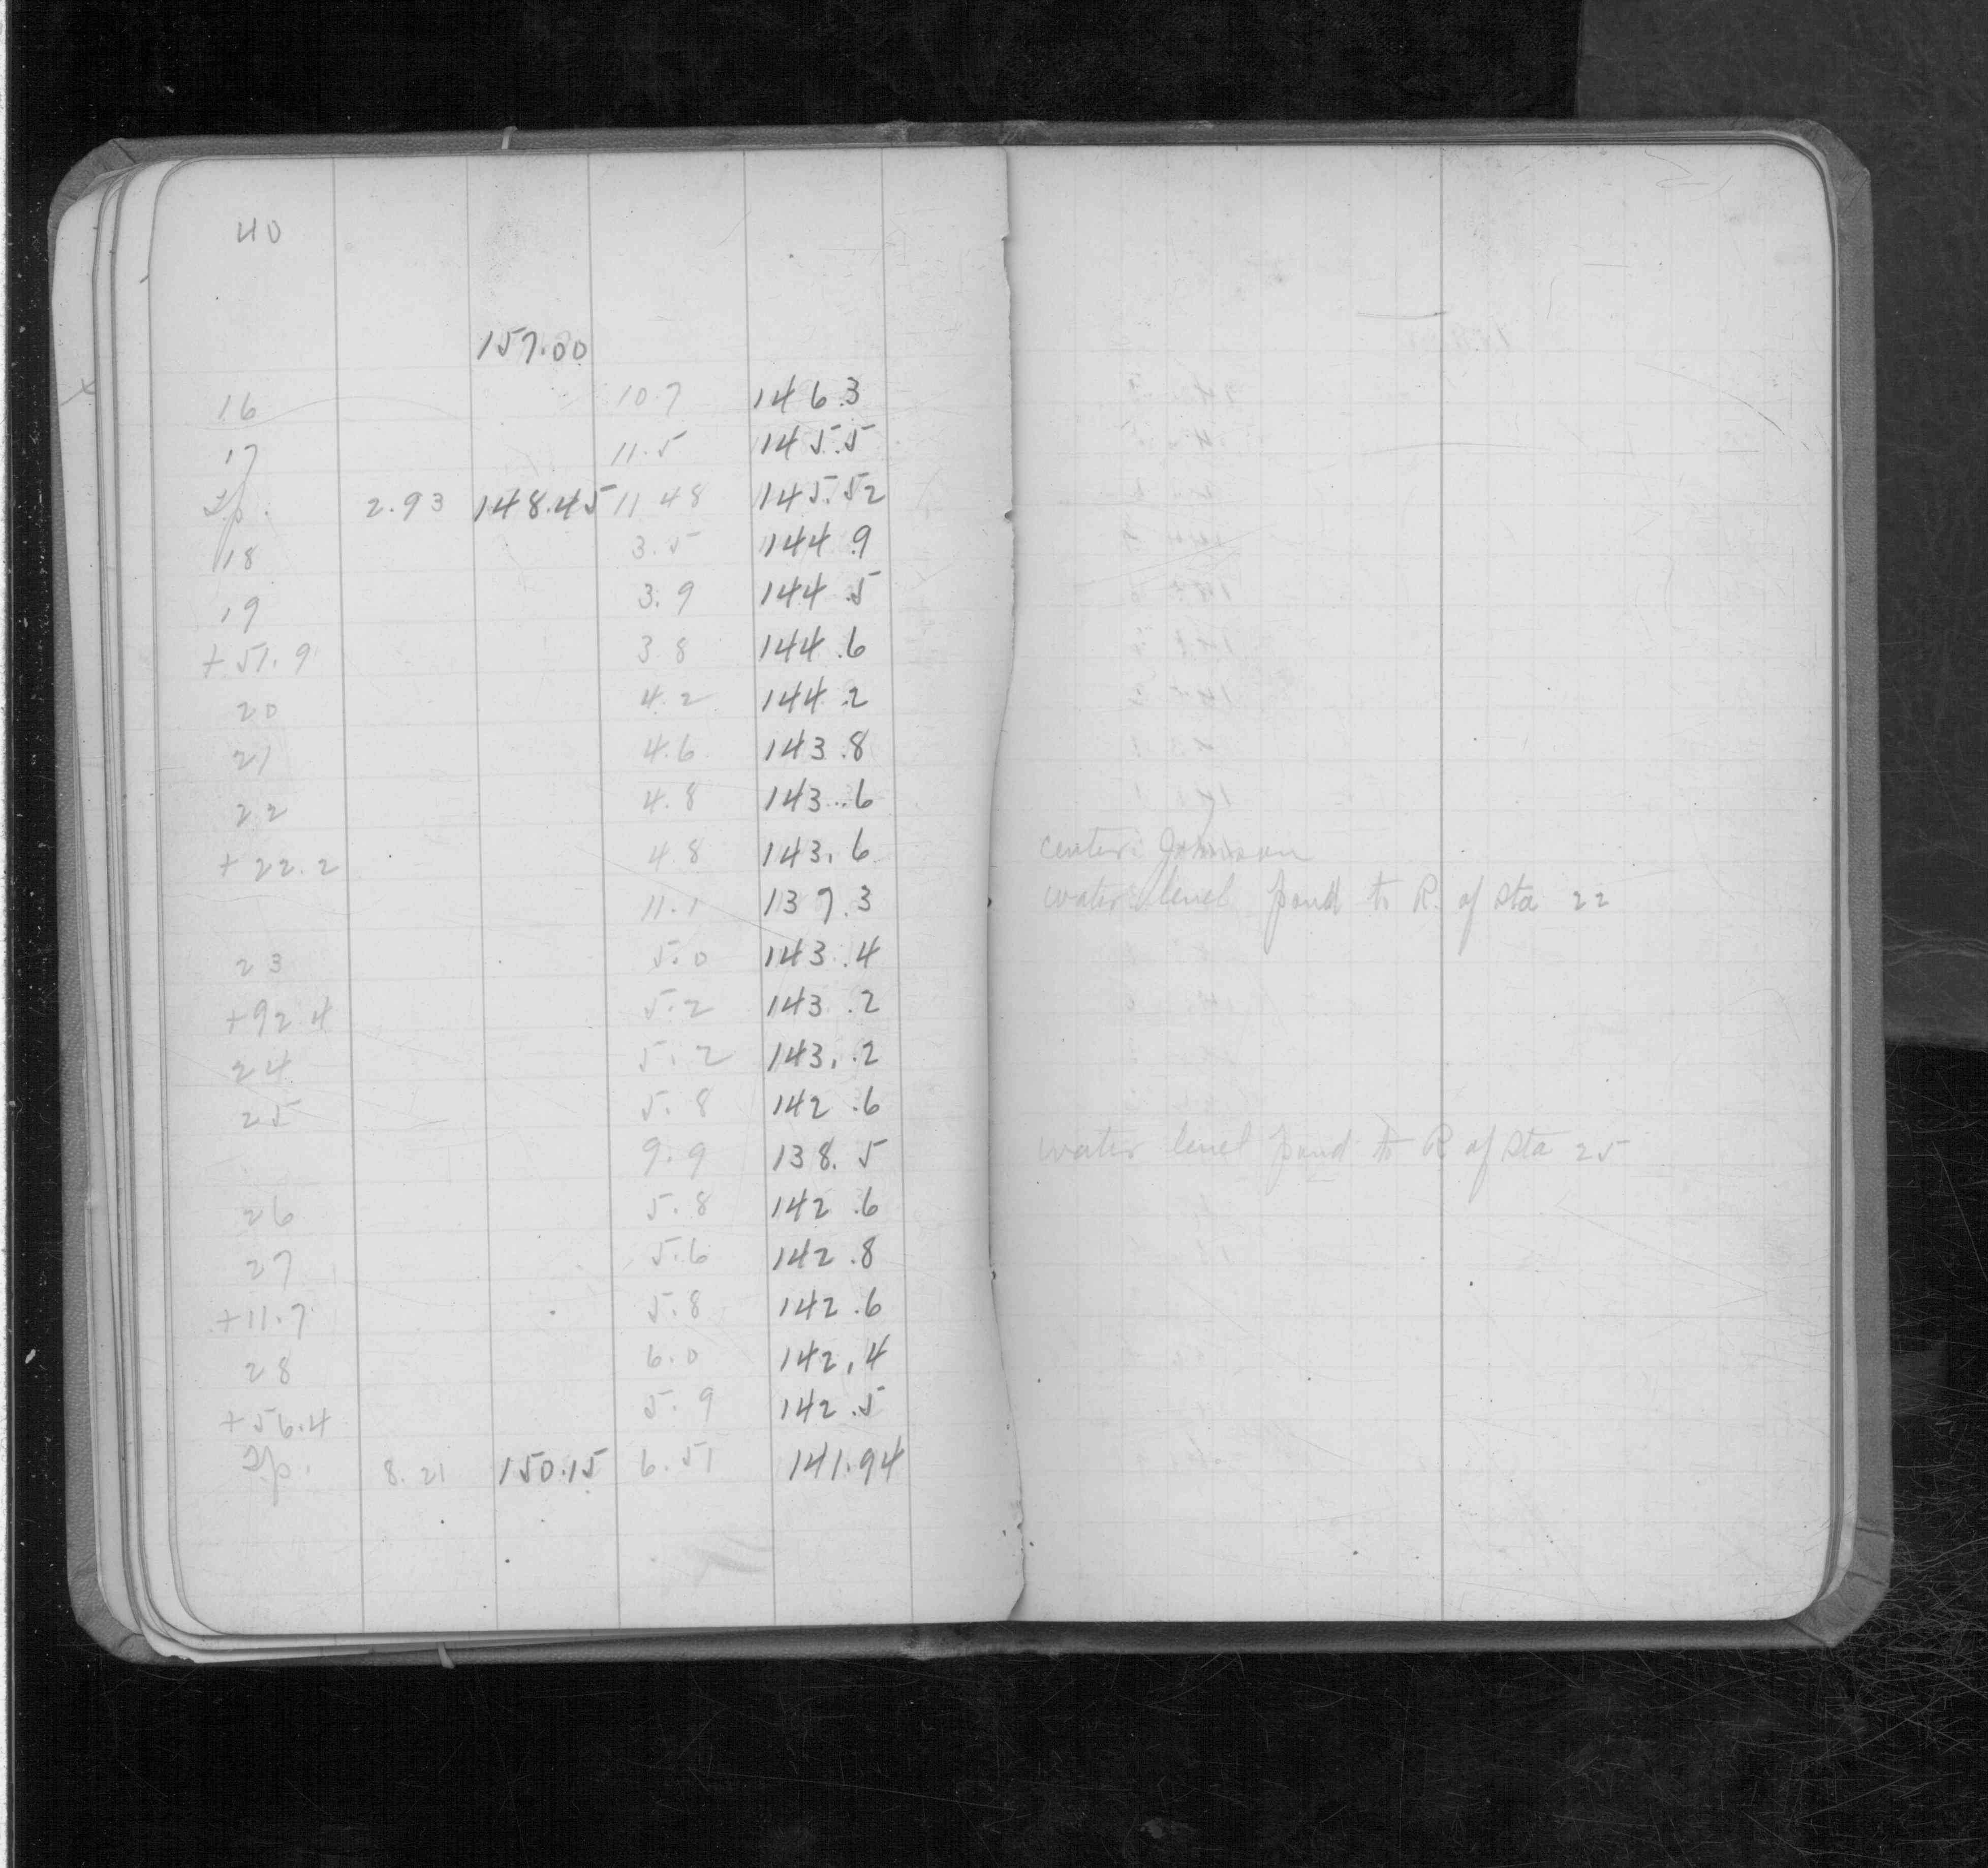 40
157.00
16 10.7 146.3
17 11.5 145.5
Tp. 2.93 148.45 11 48 145.52
18 3.5 144 .9
19 3.9 144 .5
+51.9 3 8 144 .6
20 4.2 144 .2
21 4.6 143 .8
22 4.8 143 .6
+22.2 4 8 143. 6 center Johnson
11.1 137.3 water level pond to R. of Sta 22
23 5.0 143 .4
+92.4 5.2 143 .2
24 5.2 143. .2
25 5.8 142 .6
9.9 138. 5 water level pond to R of Sta 25
26 5.8 142 .6
27 5.6 142 .8
+11.7 5.8 142 .6
28 6.0 142.4
+56.4 5.9 142 .5
Tp. 8.21 150.15 6.51 141.94